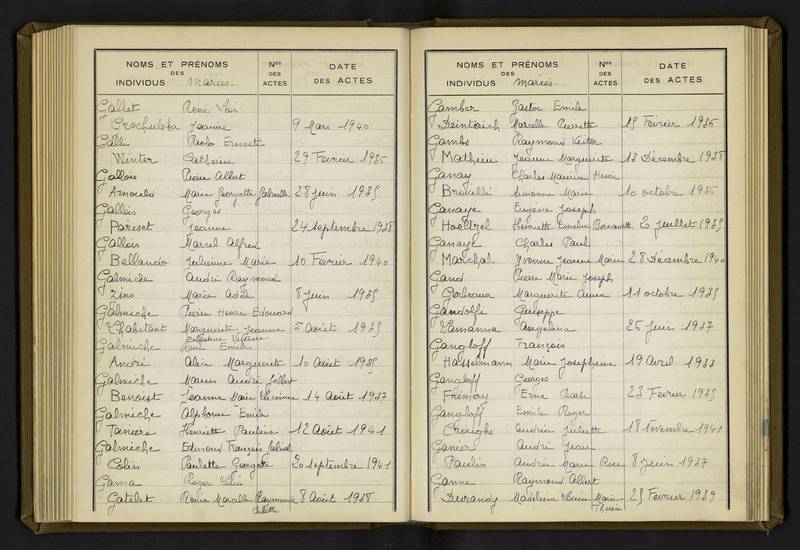 NOMS ET PRÉNOMS DES INDIVIDUS mariés. Nos DES ACTES DATE DES ACTES
Gallet René
Jeanne 9 Mars 1940
Galli Paolo Ernesto
Winter Catherine 29 Février 1936
Gallois Pierre Albert
Arnould Marie Georgette Gabrielle 28 juin 1935
Gallois Georges
Pariset Jeanne 24 septembre 1938
Gallois Marcel Alfred
Bellando Julienne Marie 10 Février 1940
Galmiche André Raymond
Zins Marie Adèle 8 juin 1935
Galmiche Pierre Henri Edouard
Thabitant Marguerite Jeanne Août 1935
Galmiche René Emile
André Alice Marguerite 10 Août 1935
Galmiche Marius André Gilbert
Benoist Jeanne Marie 14 Août 1937
Galmiche Alphonse Emile
Tanière Henriette Pauline 12 Août 1941
Galmiche Edmond François Gabriel
Colin Paulette Georgette 20 septembre 1941
Gama Roger
Gatelet Renée Marcelle Raymonde 8 Août 1938
NOMS ET PRÉNOMS DES INDIVIDUS mariés. Nos DES ACTES DATE DES ACTES
Gamber Gaston Emile
Marcelle Pierrette 15 Février 1936
Gambs Raymond Victor
Mathieu Jeanne Marguerite 13 Décembre 1938
Ganay Charles Maurice Henri
Simonne Marie 10 octobre 1936
Ganaye Eugène Joseph
Hoeltzel Henriette Emilie Bernadette 20 juillet 1935
Ganaye Charles Paul
Marchal Yvonne Jeanne Marie 28 Décembre 1940
Gand Pierre Marie Joseph
Marguerite 11 octobre 1935
Gandolfi Guiseppe
Angelina 26 juin 1937
Gangloff François
Hasselmann Marie Josephine 19 Avril 1933
Gangloff Georges
Fremory Erna 23 Février 1935
Gangloff Emile Roger
Juliette 18 Novembre 1941
Ganier André Jean
Paulin Andrée Marie Rose 8 juin 1937
Ganne Raymond Albert
Durandy Madeleine Marie-Thérèse 25 Février 1939